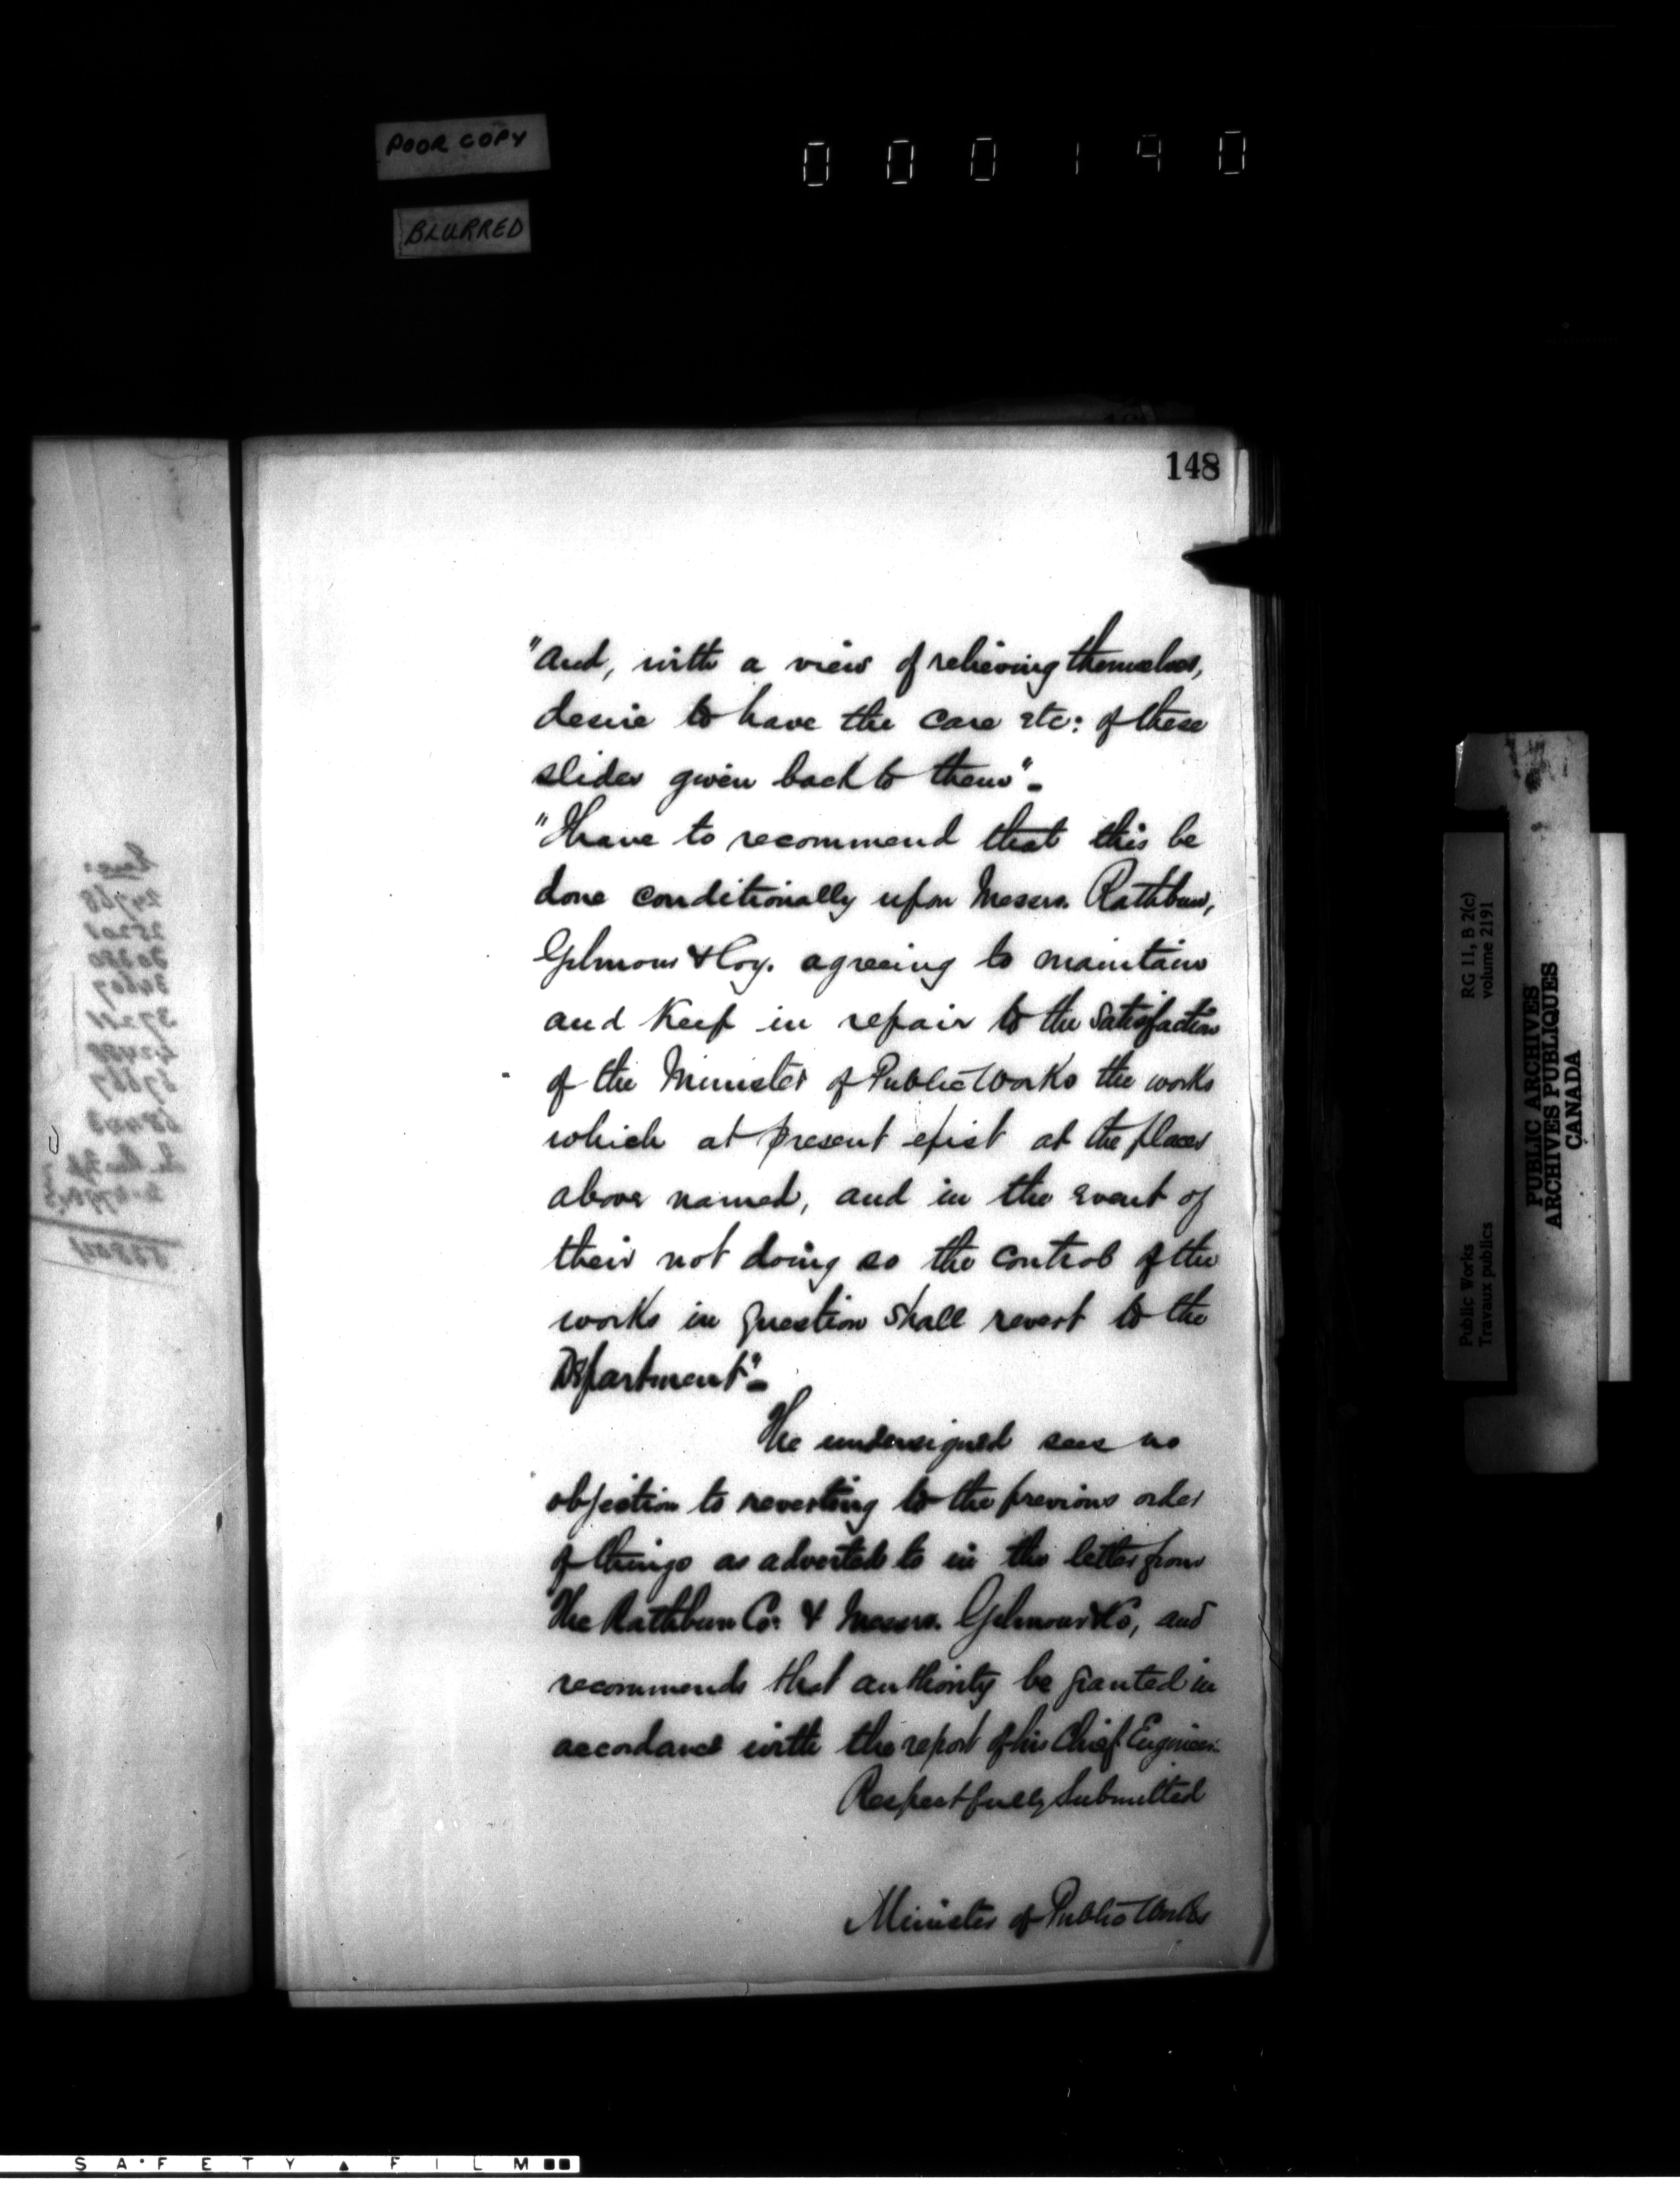 POOR COPY
BLURRED
000190
148
"and, with a view of relieving themselves,
desire to have the care etc: of these
slides given back to them"-
"I have to recommend that this be
done conditionally upon Messrs. Rathbun,
Gilmour & Coy. agreeing to maintain
and keep in repair to the satisfaction
of the Minister of Public Works the works
which at present exist at the places
above named, and in the event of
their not doing so the control of the
works in question shall revert to the
Department"-
The undersigned sees no
objection to reverting to the previous order
of things as adverted to in the letter from
The Rathbun Co: & Messrs. Gilmour & Co, and
recommends that authority be granted in
accordance with the report of his Chief Engineer.
Respectfully Submitted
Minister of Public Works
RG 11, B 2(c)
volume 2191
Public Works
Travaux publics
PUBLIC ARCHIVES
ARCHIVES PUBLIQUES
CANADA
SAFETY FILM